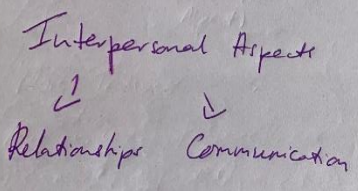 Interpersonal Aspects
Relationships Communication